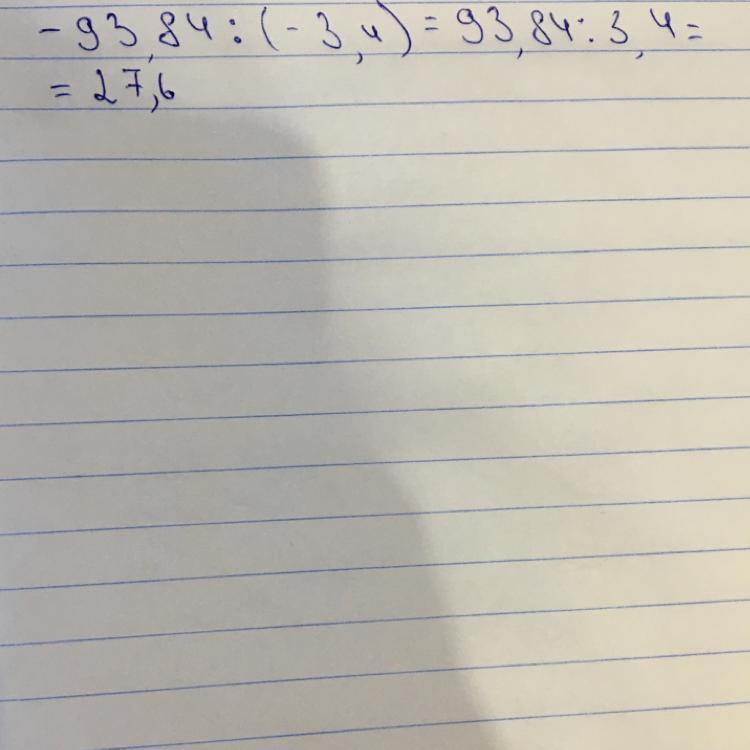 - 93,84 : (- 3,4) = 93,84 : 3,4 =
= 27,6